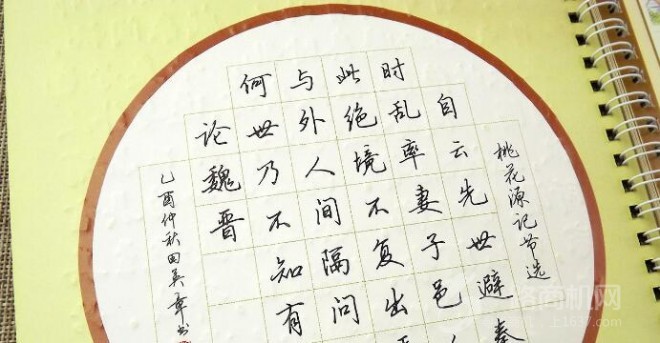 桃花源记节选
自云先世避秦
时乱率妻子邑
此绝境不复出
与外人间隔问
何世乃不知有
论魏晋
乙酉仲秋田英章书
商机网
1637.com